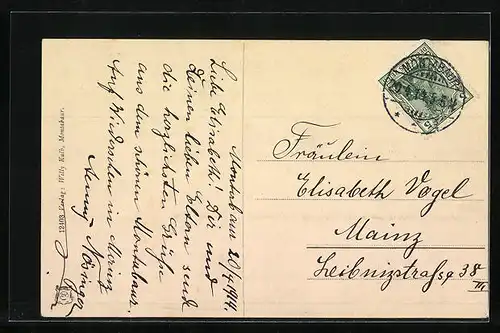 Montabaur 20/4 1914.
Liebe Elisabeth! Dir und
Deinen lieben Eltern sende
die herzlichsten Grüße
aus dem schönen Montabaur.
Auf Wiedersehen in Mainz
12403 Verlag: Willy Kalb, Montabaur.
Fräulein
Elisabeth Vogel
Mainz
Leibnizstraße 38
III